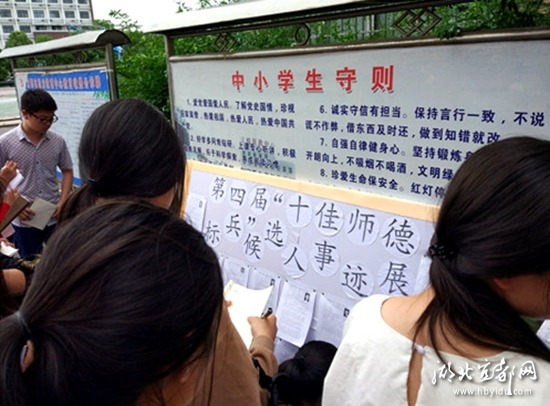 中小学生守则
1. 爱党爱国爱人民。了解党史国情，珍视
国家荣誉，热爱祖国，热爱人民，热爱中国共
6. 诚实守信有担当。保持言行一致，不说
谎不作弊，借东西及时还，做到知错就改
7. 自强自律健身心。坚持锻炼身
开朗向上，不吸烟不喝酒，文明绿
8. 珍爱生命保安全。红灯停
第四届“十佳师德
标兵”候选人事迹展
湖北宜都网
www.hbyidu.com